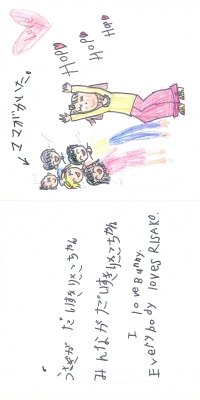 Love
HOP
HOP
HOP
↙ママがかいた。
うさぎが だいすきりさこちゃん
みんながだいすきりさこちゃん
I love Bunny.
Everybody loves RISAKO.